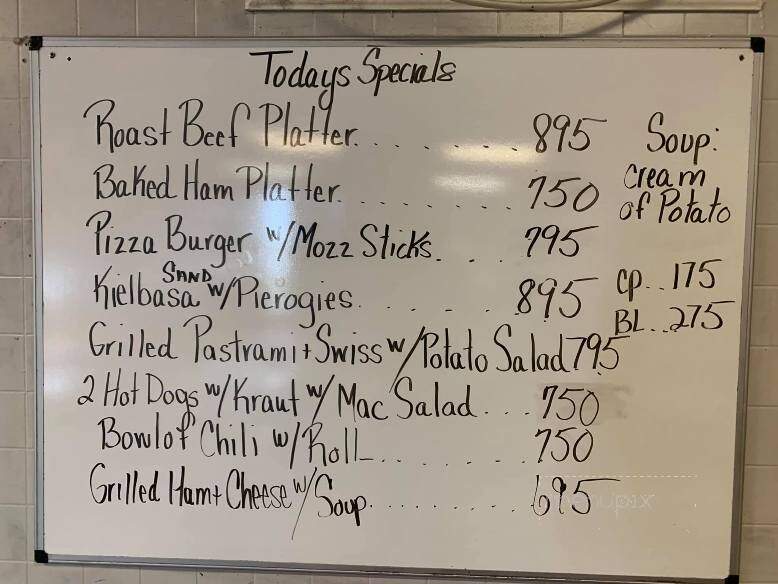 Todays Specials
Roast Beef Platter. . . . . . . . 895
Baked Ham Platter. . . . . . . . . 750
Pizza Burger w/Mozz Sticks. . . . 795
Kielbasa SAND w/Pierogies. . . . . . 895
Grilled Pastrami + Swiss w/Potato Salad 795
2 Hot Dogs w/Kraut w/ Mac Salad . . . 750
Bowl of Chili w/Roll . . . . . . . 750
Grilled Ham + Cheese w/Soup. . . . . . . . . 695
Soup:
Cream
of Potato
Cp. . 175
BL. . 275